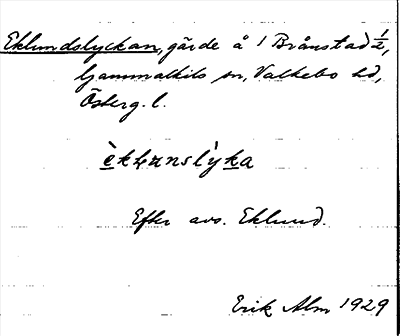 Eklundslyckan, gärde å 1 Brånstad 1/2,
Gammalkils sn, Valkebo hd,
Österg. l.
èkḷɯnslỳka
Efter avs. Eklund.
Erik Alm 1929